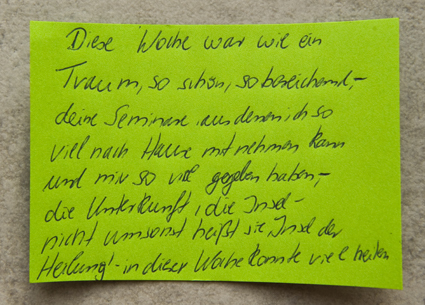 Diese Woche war wie ein
Traum, so schön, so bereichernd, -
deine Seminare, aus denen ich so
viel nach Hause mit nehmen kann
und mir so viel gegeben haben, -
die Unterkunft, die Insel -
nicht umsonst heißt sie „Insel der
Heilung" - in dieser Woche konnte viel heilen